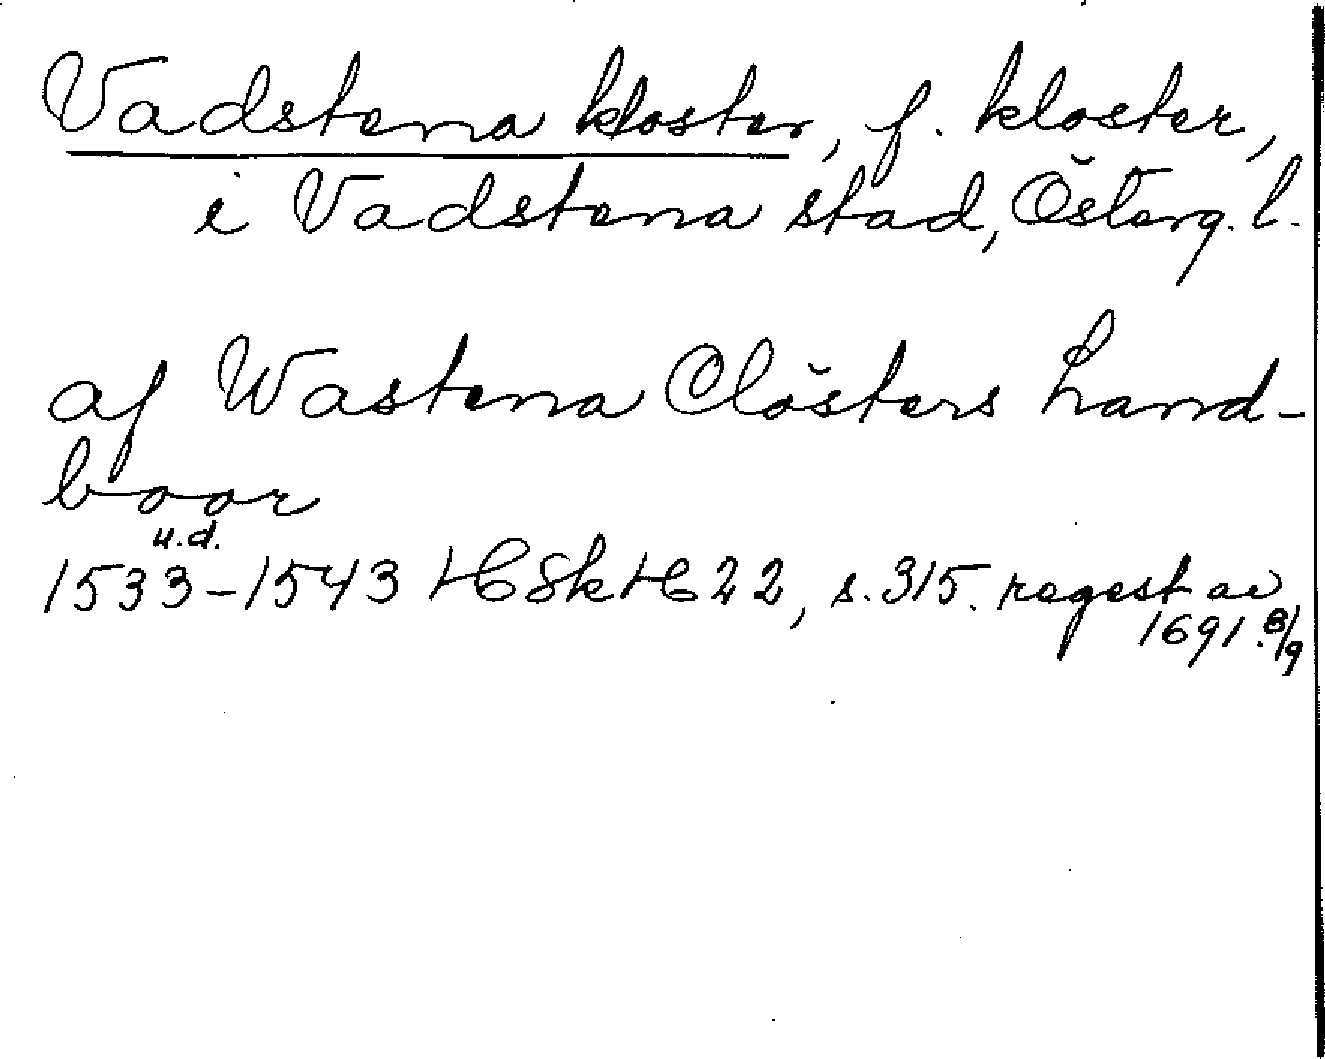 Vadstena kloster, f. kloster,
i Vadstena stad, Österg. l.
af Wastena Clösters Land-
boar
u.d.
1533-1543 HSkH 22, s. 315. regest av
1691. 8/9